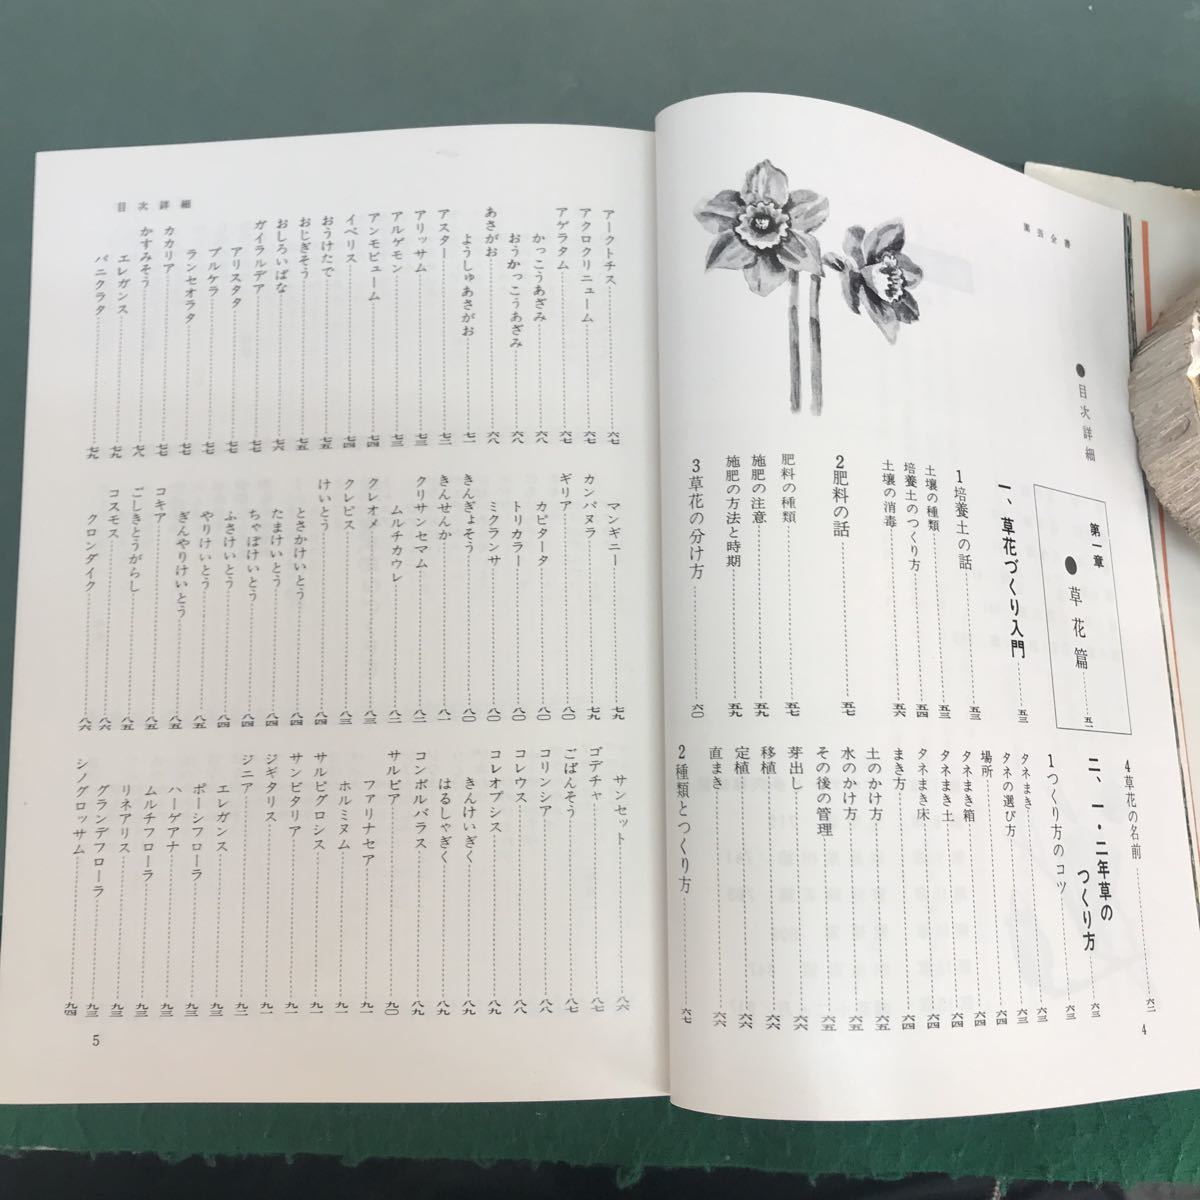 園芸全書
●目次詳細
第一章 ●草花篇……五一
一、草花づくり入門……五三
1 培養土の話……五三
土壌の種類……五三
培養土のつくり方……五四
土壌の消毒……五六
2 肥料の話……五七
肥料の種類……五七
施肥の注意……五九
施肥の方法と時期……五九
3 草花の分け方……六〇
4 草花の名前……六二
二、一・二年草の
つくり方……六三
1 つくり方のコツ……六三
タネまき……六三
タネの選び方……六三
場所……六四
タネまき箱……六四
タネまき土……六四
タネまき床……六四
まき方……六四
土のかけ方……六五
水のかけ方……六五
その後の管理……六五
芽出し……六六
移植……六六
定植……六六
直まき……六六
2 種類とつくり方……六七
4
目次詳細
アークトチス……六七
アクロクリニューム……六七
アゲラタム……六七
かっこうあざみ……六八
おうかっこうあざみ……六八
あさがお……六八
ようしゅあさがお……七一
アスター……七一
アリッサム……七三
アルゲモン……七三
アンモビューム……七四
イベリス……七四
おうけたで……七五
おじぎそう……七五
おしろいばな……七六
ガイラルデア……七七
アリスタタ……七七
プルケラ……七七
ランセオラタ……七七
カカリア……七七
かすみそう……七八
エレガンス……七九
パニクラタ……七九
マンギニー……七九
カンパヌラ……七九
ギリア……八〇
カピタータ……八〇
トリカラー……八〇
ミクランサ……八〇
きんぎょそう……八〇
きんせんか……八一
クリサンセマム……八二
ムルチカウレ……八二
クレオメ……八三
クレピス……八三
けいとう……八四
とさかけいとう……八四
たまけいとう……八四
ちゃぼけいとう……八四
ふさけいとう……八四
やりけいとう……八五
ぎんやりけいとう……八五
コキア……八五
ごしきとうがらし……八五
コスモス……八六
クロンダイク……八六
サンセット……八六
ゴデチャ……八七
ごばんそう……八七
コリンシア……八八
コレウス……八八
コレオプシス……八九
きんけいぎく……八九
はるしゃぎく……八九
コンボルバラス……八九
サルビア……九〇
ファリナセア……九一
ホルミヌム……九一
サルピグロシス……九一
サンビタリア……九一
ジギタリス……九一
ジニア……九二
エレガンス……九三
ポーシフローラ……九三
ハーゲアナ……九三
ムルチフローラ……九三
リネアリス……九三
グランデフローラ……九三
シノグロッサム……九四
5